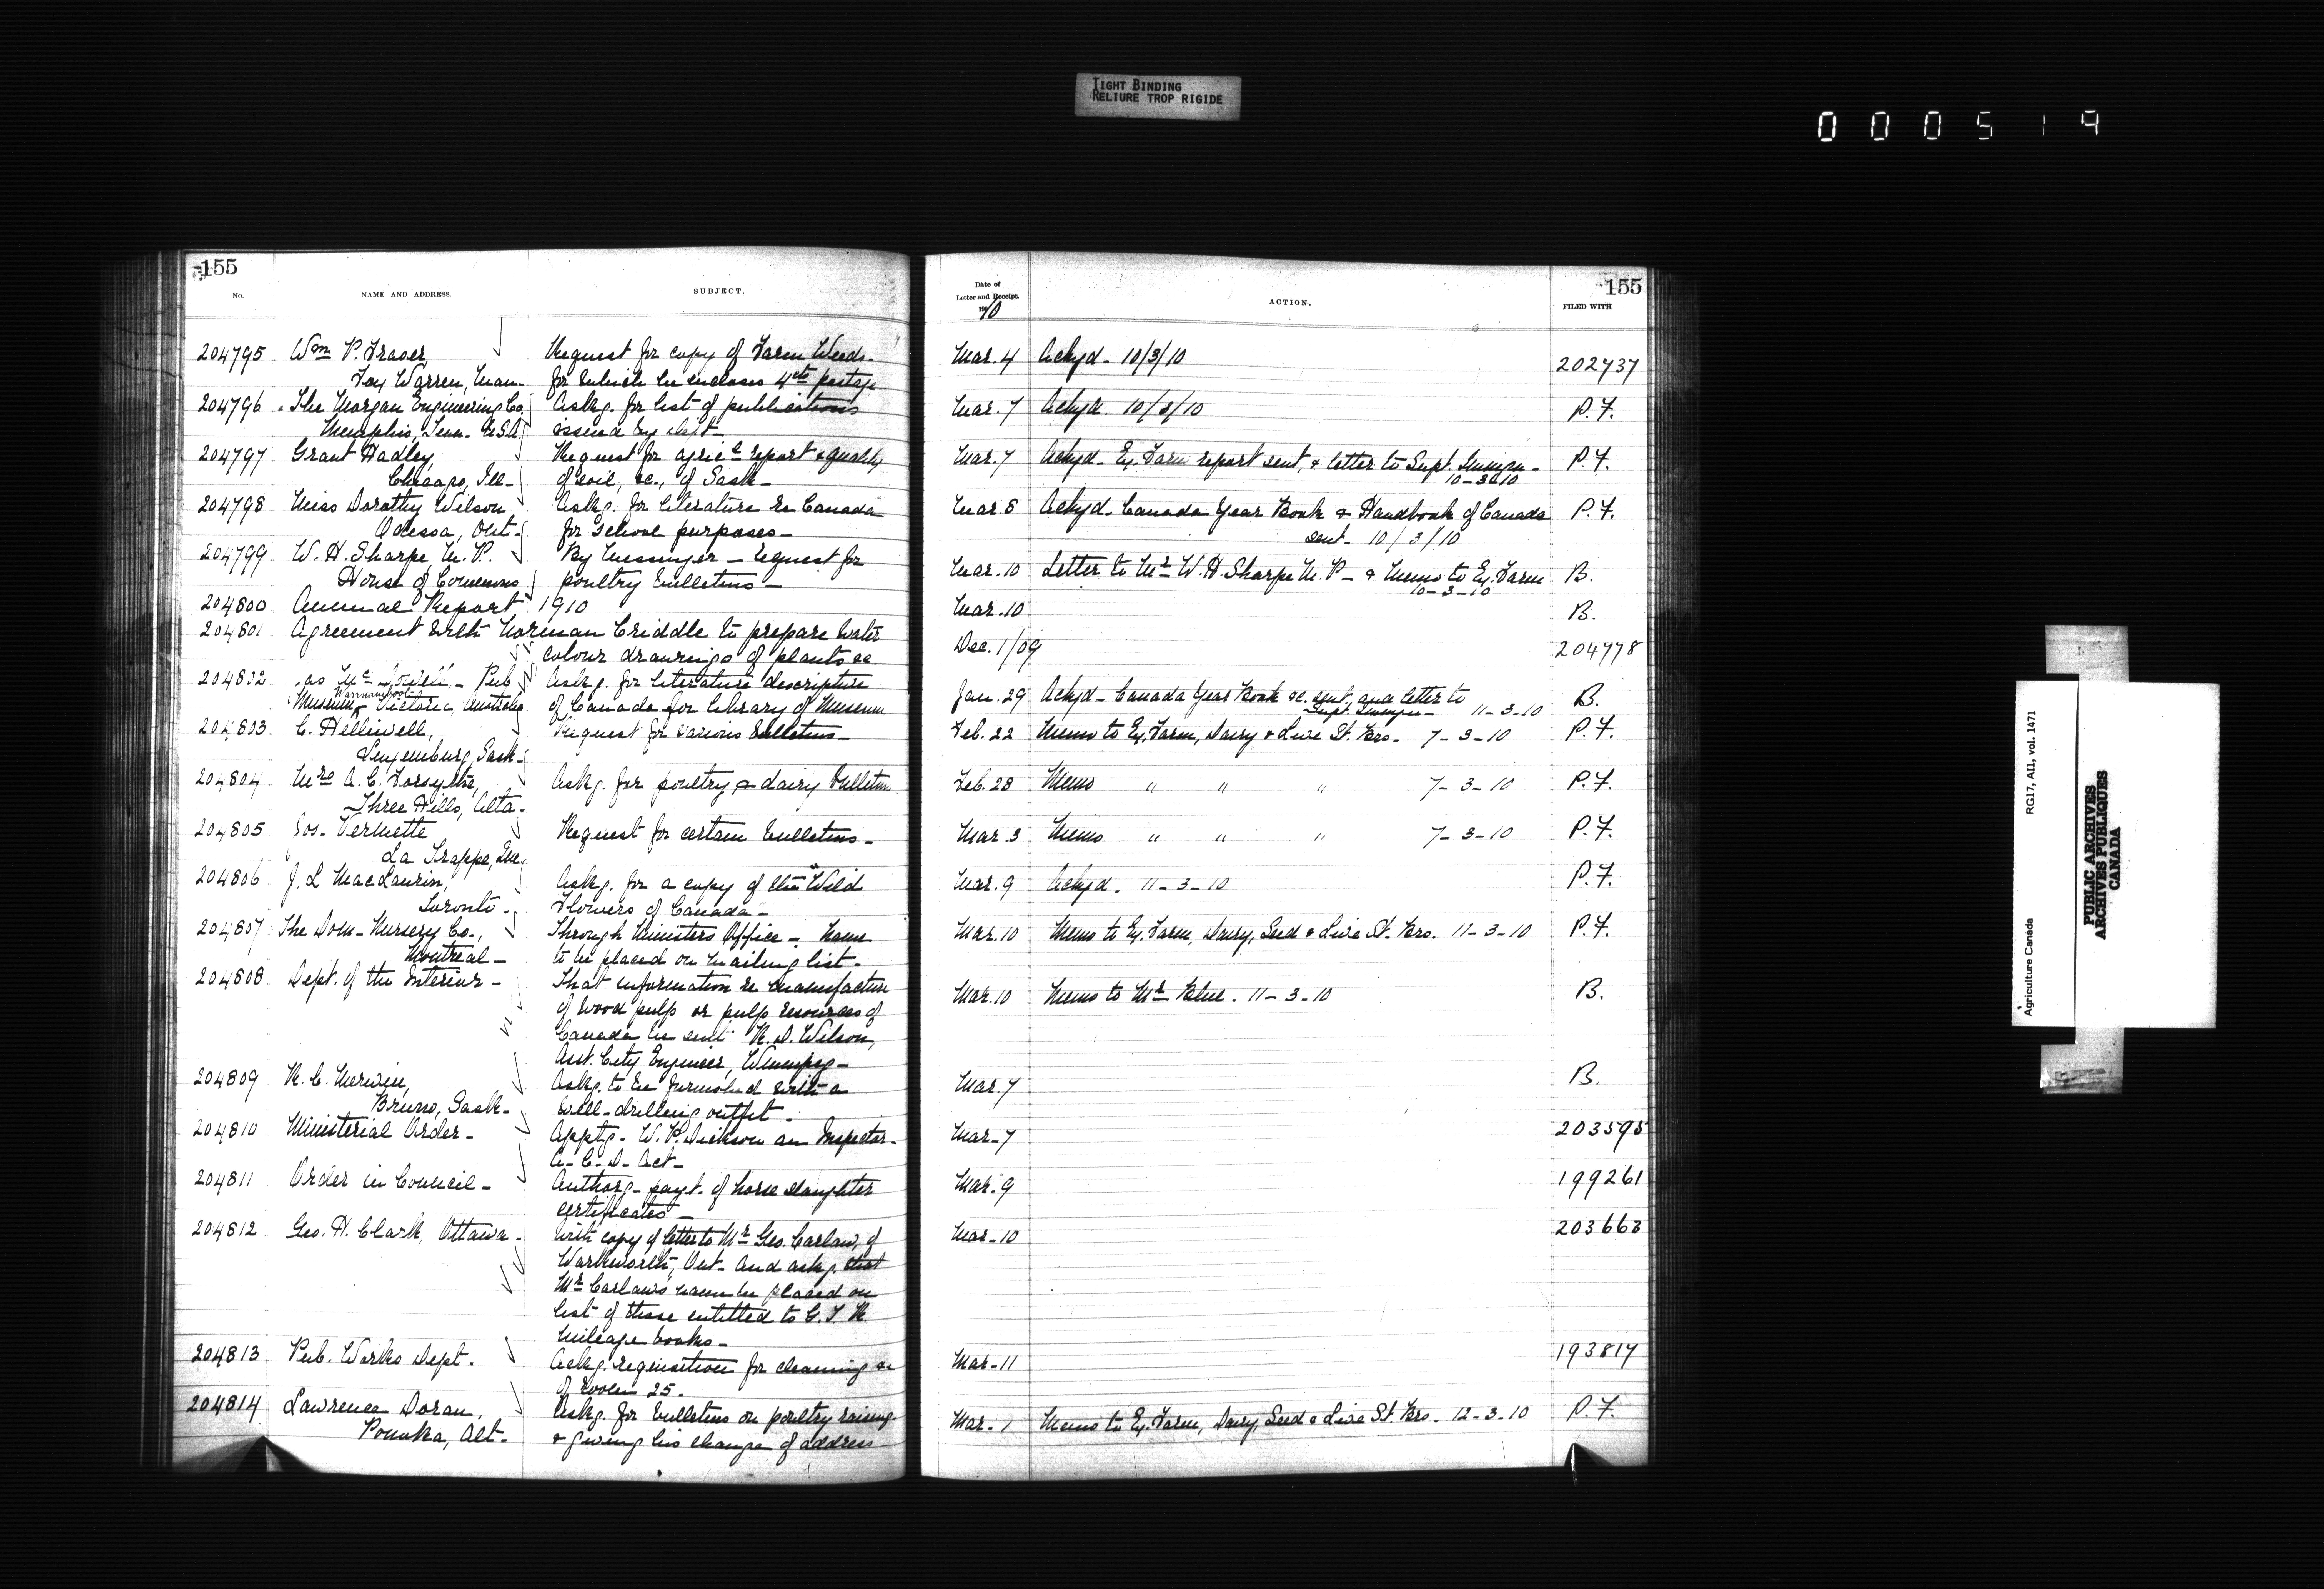 TIGHT BINDING
RELIURE TROP RIGIDE
000519
155
No.
NAME AND ADDRESS.
SUBJECT.
204795 Wm P. Fraser, Request for copy of Farm Weeds
Fox Warren, Man- for which he encloses 4cts postage
204796 The Morgan Engineering Co. Askg. for list of publications
Memphis, Tenn. U.S.A. issued by Dept-
204797 Grant Hadley, Request for agricl report & quality
Chicago, Ill- of soil, &c., of Sask-
204798 Miss Dorothy Wilson, Askg. for literature re Canada
Odessa, Ont. for school purposes-
204799 W. H. Sharpe, M. P. By Messenger - request for
House of Commons poultry bulletins-
204800 Annual Report 1910
204801 Agreement with Norman Criddle to prepare water
colour drawings of plants &c
204802 - Pub Askg. for literature descriptive
Warrnambool
Museum, Victoria, Australia of Canada for library of Museum
204803 C. Helliwell, Request for various bulletins-
Langenburg, Sask-
204804 Mrs A. C. Forsythe, Askg. for poultry & dairy bulletins
Three Hills, Alta-
204805 Jos. Vermette Request for certain bulletins-
La Trappe, Que
204806 J. L MacLaurin, Askg. for a copy of the "Wild
Toronto- Flowers of Canada-
204807 The Dom- Nursery Co., Through Ministers Office - Name
Montreal- to be placed on mailing list-
204808 Dept. of the Interior- That information re manufacture
of wood pulp or pulp resources of
Canada be sent R. D. Wilson,
Asst. City Engineer, Winnipeg-
204809 R. C. Merwin, Askg. to be furnished with a
Bruno, Sask- well-drilling outfit-
204810 Ministerial Order- Apptg- W. P. Dickson an Inspector-
A- C- D- Act-
204811 Order in Council- Authorg- payt. of horse slaughter
certificates-
204812 Geo. H. Clark, Ottawa- with copy of letter to Mr Geo. Carlaw, of
Warkworth, Ont- and askg. that
Mr Carlaw's name be placed on
list of those entitled to G. T. R.
mileage books-
204813 Pub. Works Dept. Askg. requisition for cleaning &c
of room 25.
204814 Lawrence Doran, Askg. for bulletins on poultry raising
Ponoka, Alt- & giving his change of address
155
Date of
Letter and Receipt.
1910
ACTION.
FILED WITH
Mar. 4 Ackgd- 10/3/10 202737
Mar. 7 Ackgd. 10/3/10 P. F.
Mar. 7 Ackgd- Ex. Farm report sent, & letter to Supt. Immgn- P. F.
10-3-10
Mar. 8 Ackgd- Canada Year Book & Handbook of Canada P. F.
sent- 10/3/10
Mar. 10 Letter to Mr W. H. Sharpe M. P- & Memo to Ex. Farm B.
10-3-10
Mar. 10 B.
Dec. 1/09 204778
Jan. 29 Ackgd- Canada Year Book &c. sent, and letter to B.
Supt. Immgn- 11-3-10
Feb. 22 Memo to Ex. Farm, Dairy & Live St. Brs. 7-3-10 P. F.
Feb. 28 Memo " " " 7-3-10 P. F.
Mar. 3 Memo " " " 7-3-10 P. F.
Mar. 9 Ackgd. 11-3-10 P. F.
Mar. 10 Memo to Ex. Farm, Dairy, Seed & Live St. Brs. 11-3-10 P. F.
Mar. 10 Memo to Mr Blue. 11-3-10 B.
Mar. 7 B.
Mar-7 203595
Mar. 9 199261
Mar-10 203663
Mar-11 193817
Mar. 1 Memo to Ex. Farm, Dairy, Seed & Live St. Brs. 12-3-10 P. F.
Agriculture Canada RG17, AII, vol. 1471
PUBLIC ARCHIVES
ARCHIVES PUBLIQUES
CANADA